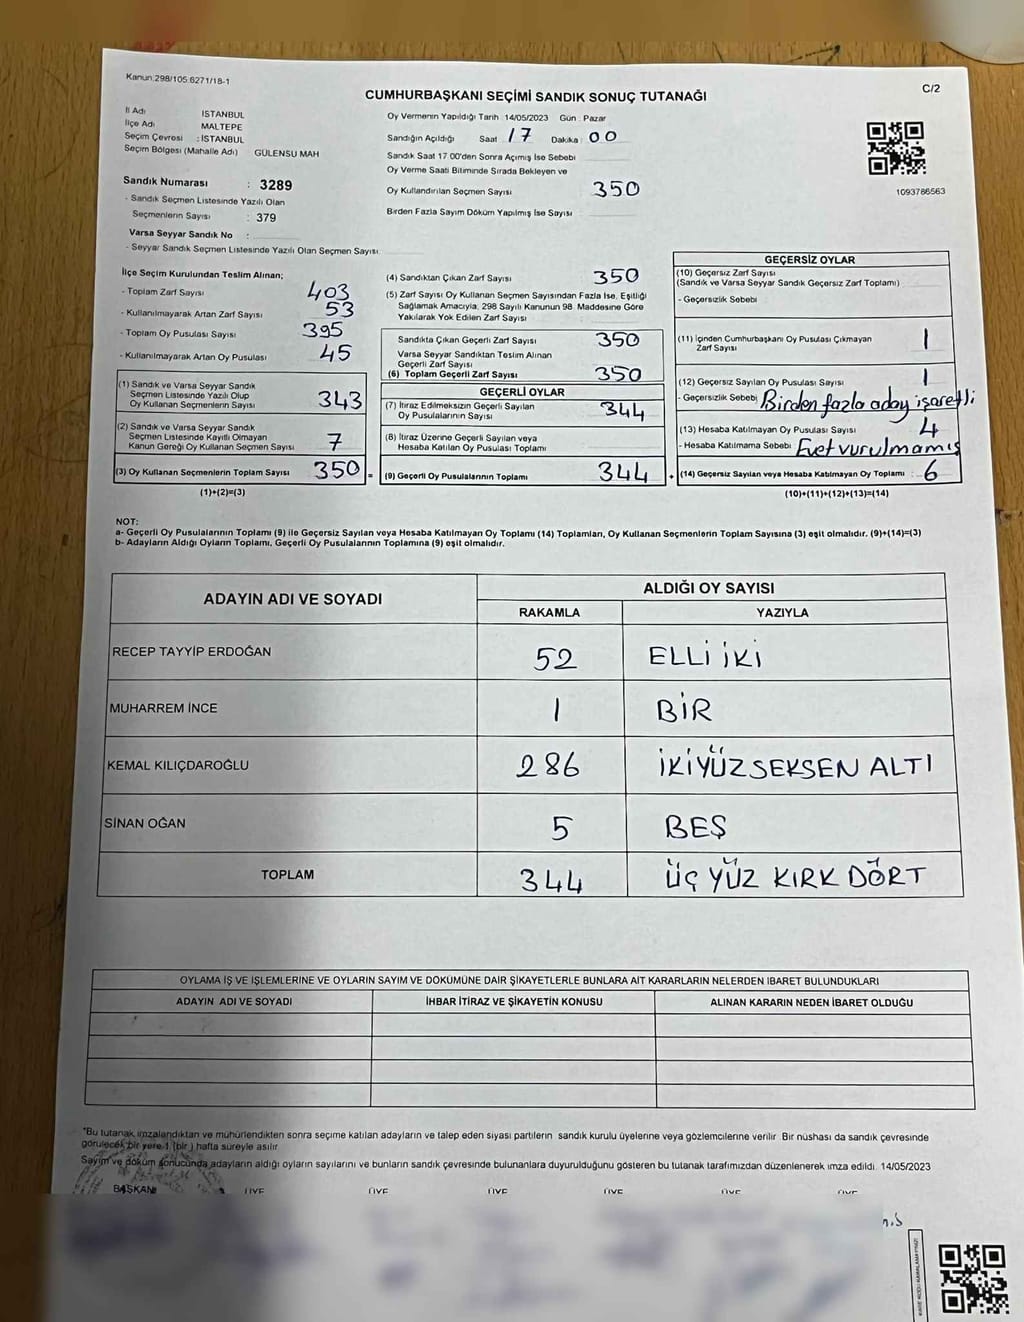 Kanun:298/105.6271/18-1
C/2
CUMHURBAŞKANI SEÇİMİ SANDIK SONUÇ TUTANAĞI
İl Adı İSTANBUL
İlçe Adı MALTEPE
Seçim Çevresi : İSTANBUL
Seçim Bölgesi (Mahalle Adı) GÜLENSU MAH
Sandık Numarası : 3289
- Sandık Seçmen Listesinde Yazılı Olan
Seçmenlerin Sayısı : 379
Varsa Seyyar Sandık No :
- Seyyar Sandık Seçmen Listesinde Yazılı Olan Seçmen Sayısı
Oy Vermenin Yapıldığı Tarih : 14/05/2023 Gün : Pazar
Sandığın Açıldığı Saat 17 Dakika : 00
Sandık Saat 17.00'den Sonra Açımış İse Sebebi
Oy Verme Saati Bitiminde Sırada Bekleyen ve
Oy Kullandırılan Seçmen Sayısı 350
Birden Fazla Sayım Döküm Yapılmış İse Sayısı
1093786563
İlçe Seçim Kurulundan Teslim Alınan;
- Toplam Zarf Sayısı 403
- Kullanılmayarak Artan Zarf Sayısı 53
- Toplam Oy Pusulası Sayısı 395
- Kullanılmayarak Artan Oy Pusulası 45
(1) Sandık ve Varsa Seyyar Sandık
Seçmen Listesinde Yazılı Olup
Oy Kullanan Seçmenlerin Sayısı 343
(2) Sandık ve Varsa Seyyar Sandık
Seçmen Listesinde Kayıtlı Olmayan
Kanun Gereği Oy Kullanan Seçmen Sayısı 7
(3) Oy Kullanan Seçmenlerin Toplam Sayısı 350 =
(1)+(2)=(3)
(4) Sandıktan Çıkan Zarf Sayısı 350
(5) Zarf Sayısı Oy Kullanan Seçmen Sayısından Fazla İse, Eşitliği
Sağlamak Amacıyla, 298 Sayılı Kanunun 98. Maddesine Göre
Yakılarak Yok Edilen Zarf Sayısı :
Sandıkta Çıkan Geçerli Zarf Sayısı 350
Varsa Seyyar Sandıktan Teslim Alınan
Geçerli Zarf Sayısı
(6) Toplam Geçerli Zarf Sayısı 350
GEÇERLİ OYLAR
(7) İtiraz Edilmeksizin Geçerli Sayılan
Oy Pusulalarının Sayısı 344
(8) İtiraz Üzerine Geçerli Sayılan veya
Hesaba Katılan Oy Pusulası Toplamı
(9) Geçerli Oy Pusulalarının Toplamı 344 +
GEÇERSİZ OYLAR
(10) Geçersiz Zarf Sayısı
(Sandık ve Varsa Seyyar Sandık Geçersiz Zarf Toplamı)
- Geçersizlik Sebebi
(11) İçinden Cumhurbaşkanı Oy Pusulası Çıkmayan
Zarf Sayısı 1
(12) Geçersiz Sayılan Oy Pusulası Sayısı 1
- Geçersizlik Sebebi Birden fazla aday işaretli
(13) Hesaba Katılmayan Oy Pusulası Sayısı 4
- Hesaba Katılmama Sebebi Evet vurulmamış
(14) Geçersiz Sayılan veya Hesaba Katılmayan Oy Toplamı : 6
(10)+(11)+(12)+(13)=(14)
NOT:
a- Geçerli Oy Pusulalarının Toplamı (9) ile Geçersiz Sayılan veya Hesaba Katılmayan Oy Toplamı (14) Toplamları, Oy Kullanan Seçmenlerin Toplam Sayısına (3) eşit olmalıdır. (9)+(14)=(3)
b- Adayların Aldığı Oyların Toplamı, Geçerli Oy Pusulalarının Toplamına (9) eşit olmalıdır.
ADAYIN ADI VE SOYADI ALDIĞI OY SAYISI
RAKAMLA YAZIYLA
RECEP TAYYİP ERDOĞAN 52 ELLİ İKİ
MUHARREM İNCE 1 BİR
KEMAL KILIÇDAROĞLU 286 İKİYÜZSEKSEN ALTI
SİNAN OĞAN 5 BEŞ
TOPLAM 344 ÜÇ YÜZ KIRK DÖRT
OYLAMA İŞ VE İŞLEMLERİNE VE OYLARIN SAYIM VE DÖKÜMÜNE DAİR ŞİKAYETLERLE BUNLARA AİT KARARLARIN NELERDEN İBARET BULUNDUKLARI
ADAYIN ADI VE SOYADI İHBAR İTİRAZ VE ŞİKAYETİN KONUSU ALINAN KARARIN NEDEN İBARET OLDUĞU
*Bu tutanak imzalandıktan ve mühürlendikten sonra seçime katılan adayların ve talep eden siyasi partilerin sandık kurulu üyelerine veya gözlemcilerine verilir. Bir nüshası da sandık çevresinde
görülecek bir yere 1 (bir) hafta süreyle asılır.
Sayım ve döküm sonucunda adayların aldığı oyların sayılarını ve bunların sandık çevresinde bulunanlara duyurulduğunu gösteren bu tutanak tarafımızdan düzenlenerek imza edildi. 14/05/2023
BAŞKAN ÜYE ÜYE ÜYE ÜYE ÜYE ÜYE